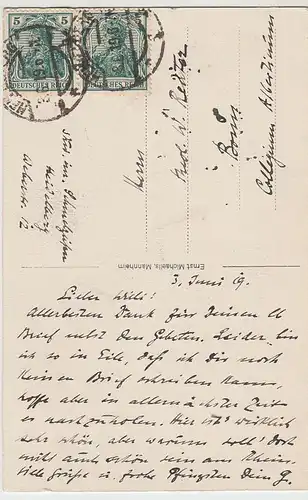 5
5
DEUTSCHES REICH
DEUTSCHES REICH
Herrn
Prof. W. Reitor
Bonn
Collegium Albertinum
Heidelberg
Ernst Michaelis, Mannheim
3. Juni 19.
Lieber Willi!
Allerbesten Dank für Deinen lb
Brief nebst den Gebeten. Leider bin
ich so in Eile, daß ich Dir noch
keinen Brief schreiben kann,
hoffe aber in allernächster Zeit
es nachzuholen. Hier ist's wirklich
sehr schön, aber warum soll's dort
nicht auch schön sein am Rhein.
Viele Grüße u. frohe Pfingsten Dein G.